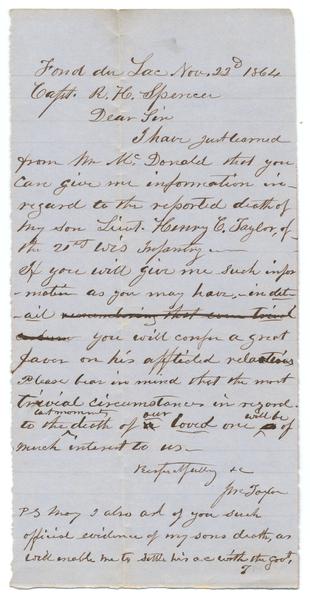 Fond du Lac Nov. 22d 1864
Capt. R. H. Spencer
Dear Sir
I have just learned
from Mr McDonald that you
can give me information in
regard to the reported death of
my son Lieut. Henry C. Taylor, of
the 21st Wis Infantry —
If you will give me such infor
mation as you may have, in det
-ail remembering that
you will confer a great
favor on his afflicted relations
Please bear in mind that the most
trivial circumstances in regard
to the death of our loved one
at moments
will be of
much interest to us —
Respectfully &c
Taylor
P.S May I also ask of you such
official evidence of my sons death, as
will enable me to settle his ac with the Govt.